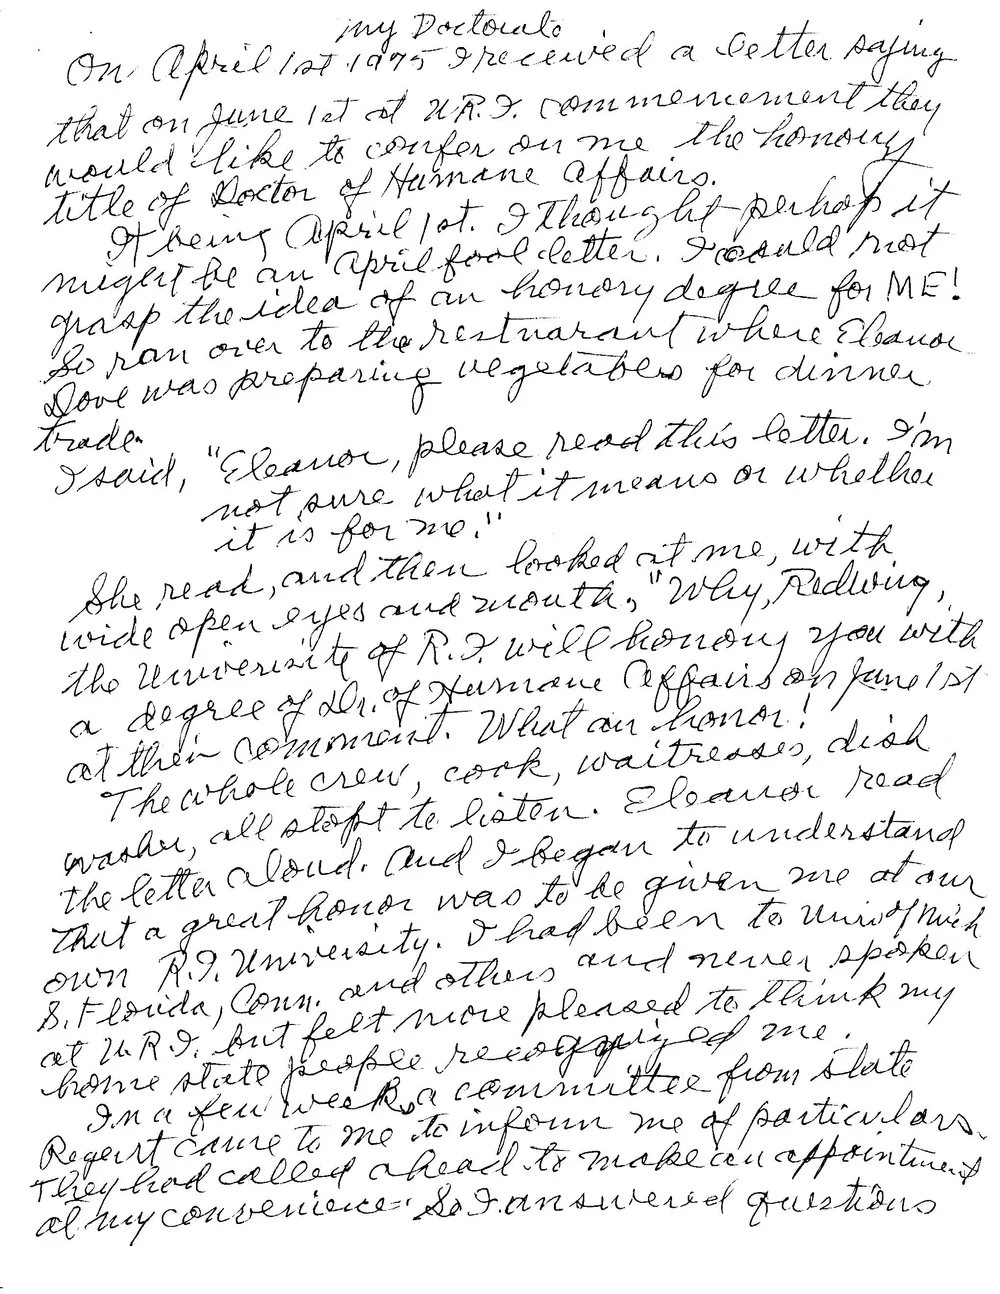 my Doctorate
On April 1st 1975 I received a letter saying
that on June 1st at U.R.I. commencement they
would like to confer on me the honory
title of Doctor of Humane Affairs.
It being April 1st. I thought perhap it
might be an April fool letter. I could not
grasp the idea of an honory degree for ME!
So ran over to the restuarant where Eleanor
Dove was preparing vegetables for dinner
trade.
I said, "Eleanor, please read this letter. I'm
not sure what it means or whether
it is for me."
She read, and then looked at me, with
wide open eyes and mouth, "Why, Redwing,
the Univerisity of R.I. will honory you with
a degree of Dr. of Humane Affairs on June 1st
at their comment. What an honor!
The whole crew, cook, waitresses, dish
washer, all stopt to listen. Eleanor read
the letter aloud. And I began to understand
that a great honor was to be given me at our
own R.I. University. I had been to Univ of Mich
S. Florida, Conn. and others and never spoken
at U.R.I. but felt more pleased to think my
home state people recognized me.
In a few weeks, a committee from State
Regent came to me to inform me of particulars.
They had called ahead to make an appointment
at my convenience. So I answered questions